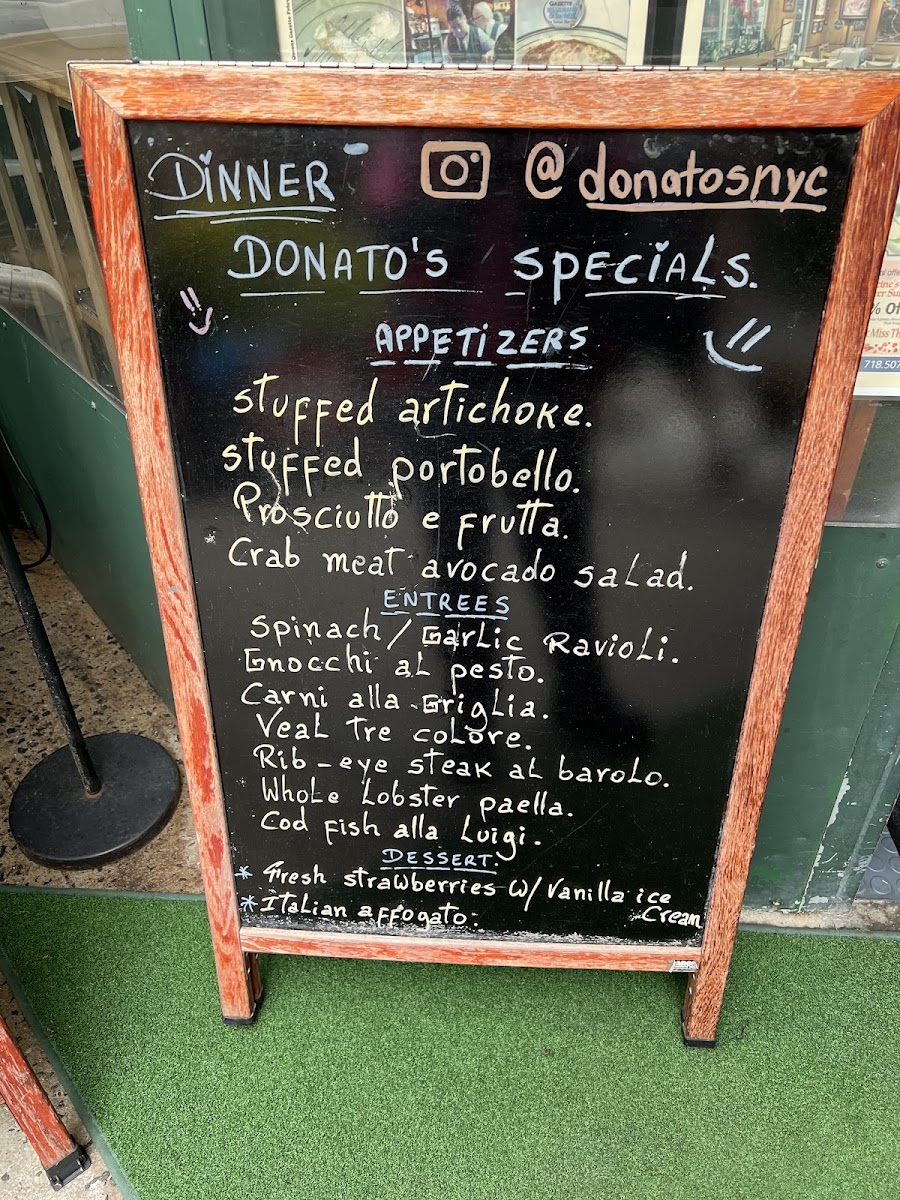 DINNER @donatosnyc
DONATO'S SPECIALS.
APPETIZERS
stuffed artichoke.
stuffed portobello.
Prosciutto e frutta.
Crab meat avocado salad.
ENTREES
Spinach / Garlic Ravioli.
Gnocchi al pesto.
Carni alla Griglia.
Veal Tre colore.
Rib-eye steak al barolo.
Whole Lobster paella.
Cod fish alla Luigi.
DESSERT
* Fresh strawberries w/ Vanilla ice
Cream
* Italian affogato.
GAZETTE
718.507